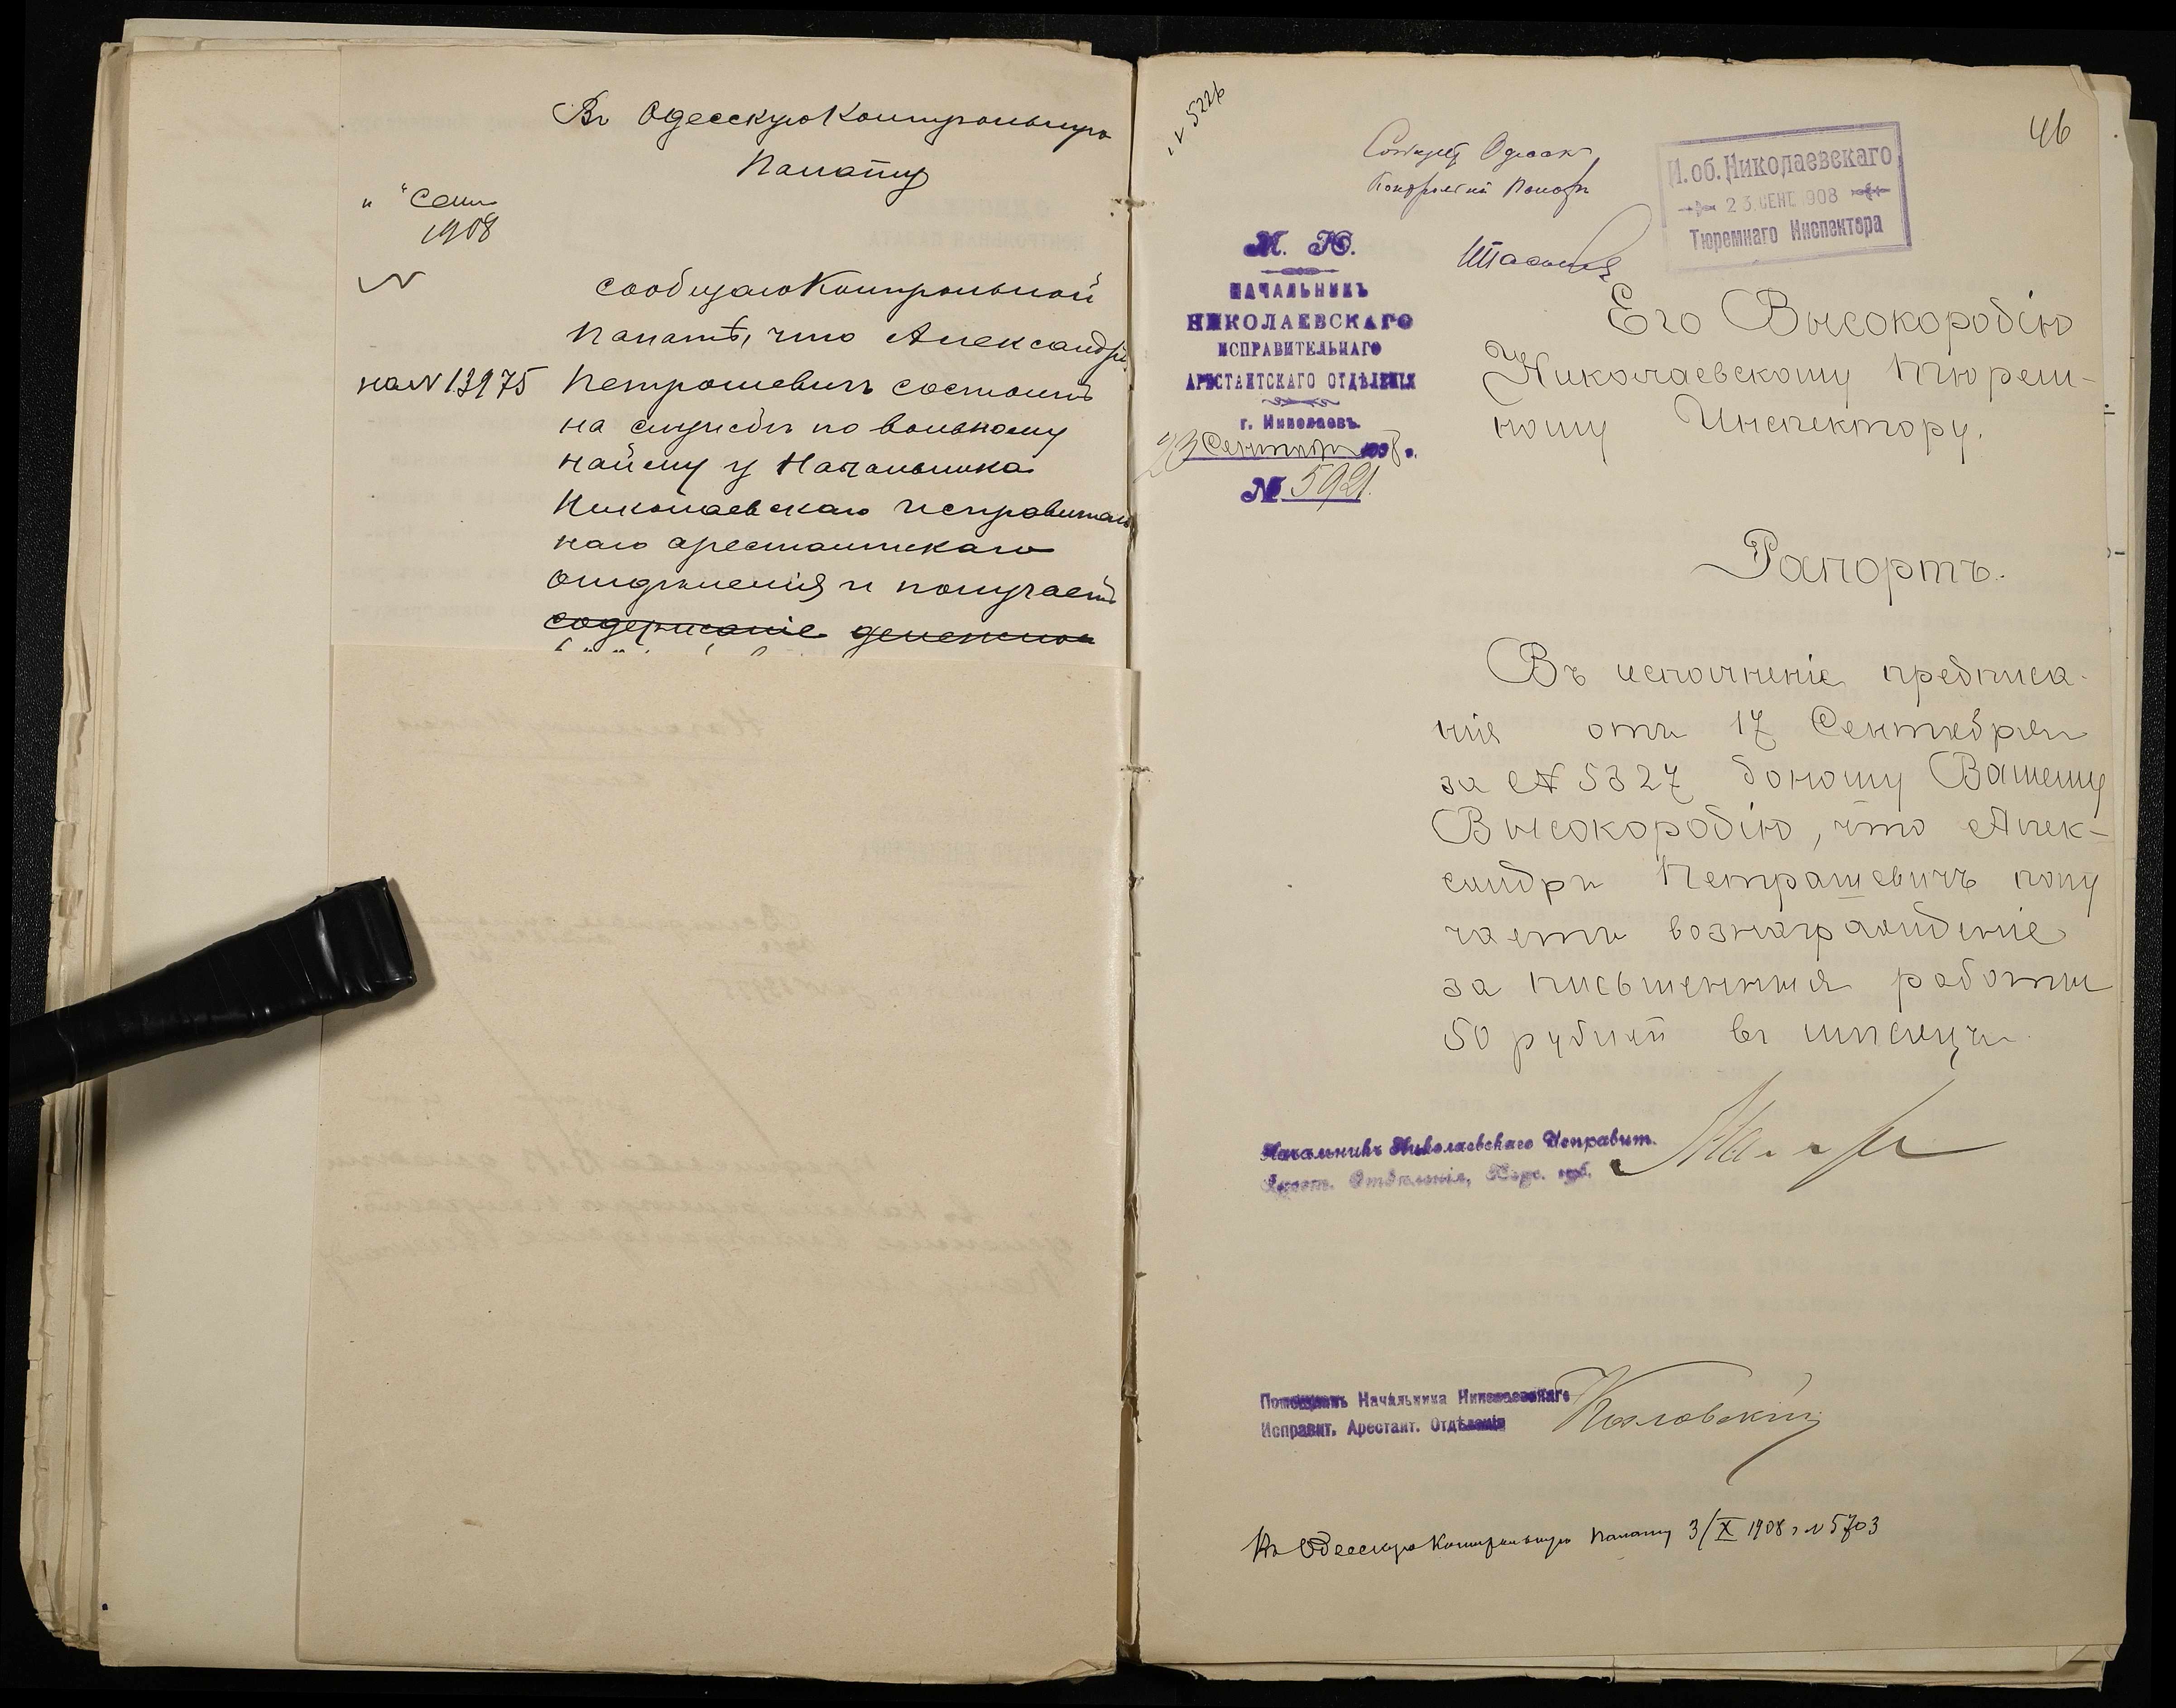 Въ Одесскую Контрольную
Палату
" " Сент
1908
N
сообщаю Контрольной
Палатѣ, что Александръ
на N 13975
Петрошевичъ состоитъ
на службѣ по вольному
найему у Начальника
Николаевскаго исправитель
наго арестантскаго
отдѣленія и получаетъ
содержаніе денежное
46
Сообщить Одесск
Контрольной Палатѣ
И. об. Николаевскаго
23 СЕНТ 1908
Тюремнаго Инспектора
М. Ю.
НАЧАЛЬНИКЪ
НИКОЛАЕВСКАГО
ИСПРАВИТЕЛЬНАГО
АРЕСТАНТСКАГО ОТДѢЛЕНІЯ
г. Николаевъ.
23 Сентября 1908 г.
№ 5921.
Его Высокородію
Николаевскому Тюрем-
ному Инспектору.
Рапортъ.
Въ исполненіе предписа-
нія отъ 17 Сентября
за № 5327 доношу Вашему
Высокородію, что Алек-
сандръ Петрашевичъ полу
чаетъ вознагражденіе
за письменныя работы
50 рублей въ мѣсяцъ.
Начальникъ Николаевскаго Исправит.
Арест. Отдѣленія, Херс. губ.
Помощникъ Начальника Николаевскаго
Исправит. Арестант. Отдѣленія
Козловскій
Въ Одесскую Контрольную Палату 3/X 1908 г N 5703